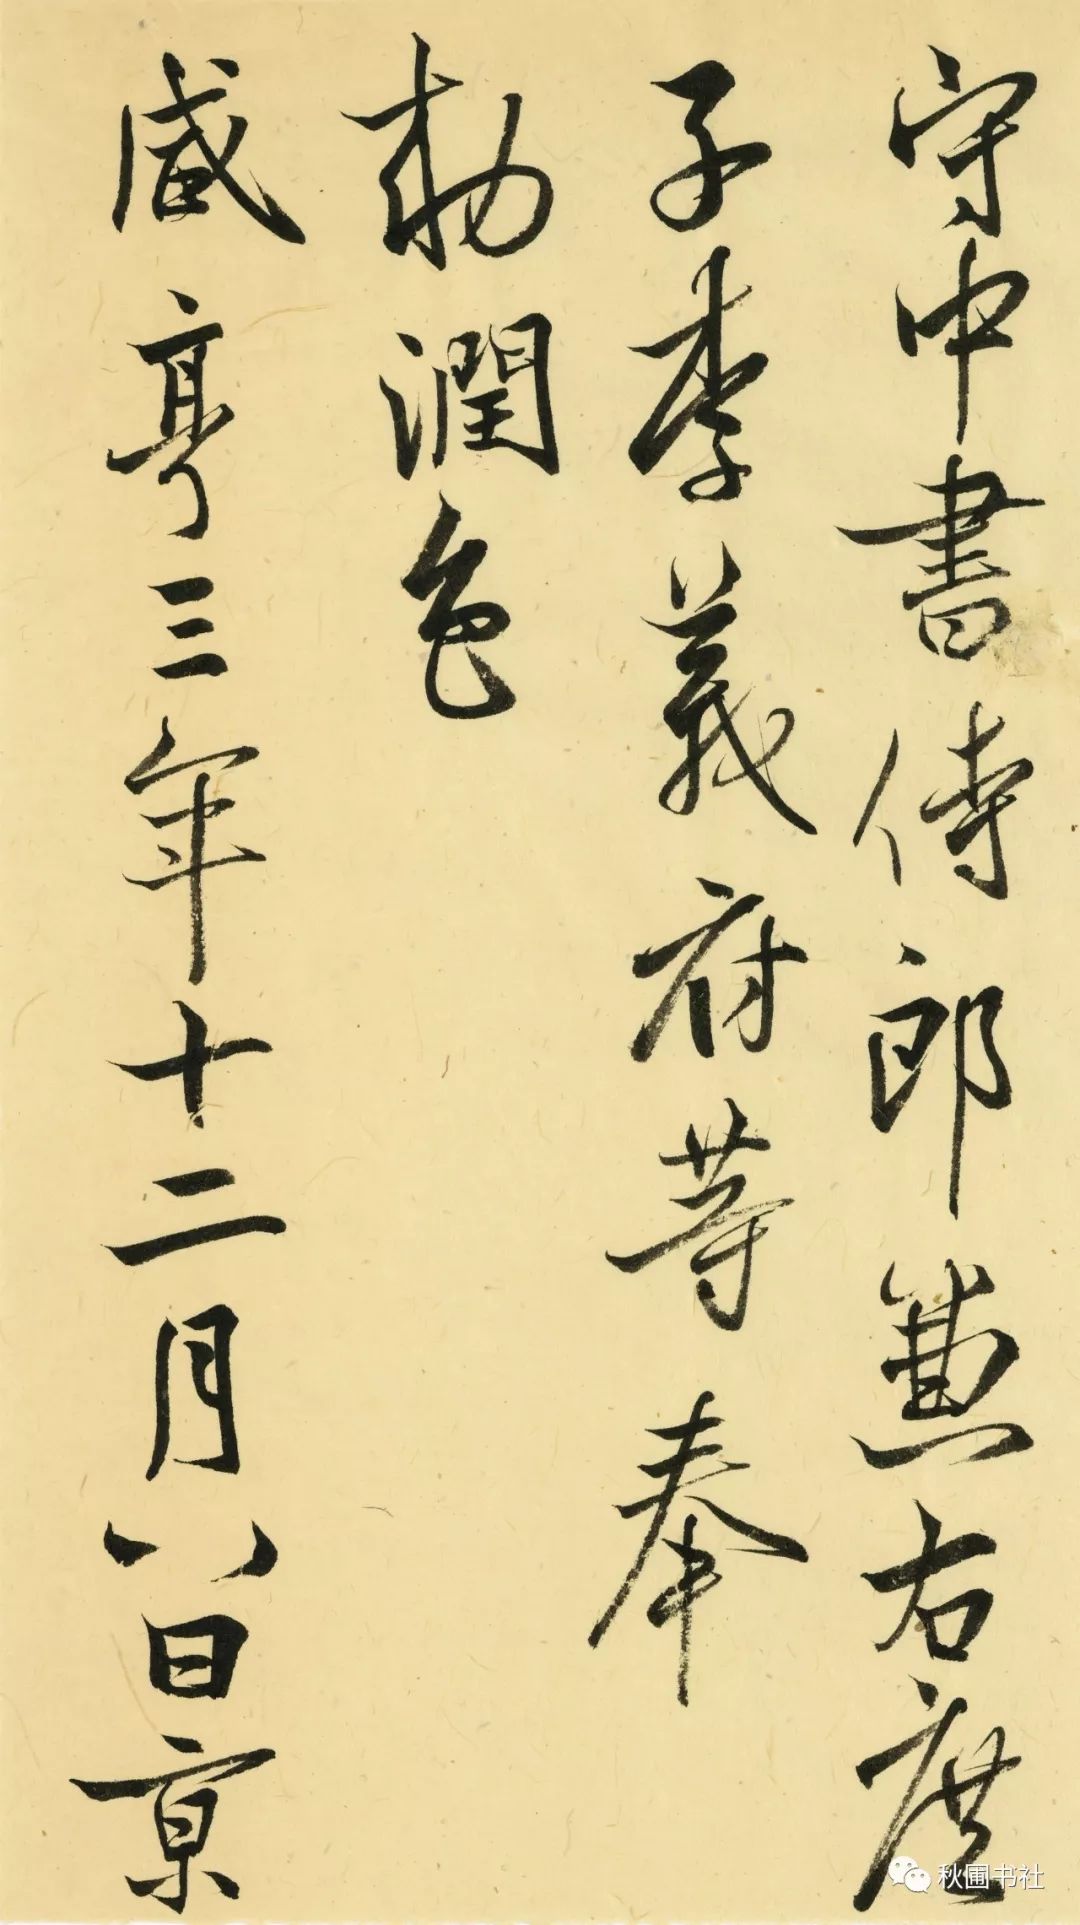 守中書侍郎兼右庶
子李義府等奉
勅潤色
咸亨三年十二月八日京
秋圃书社